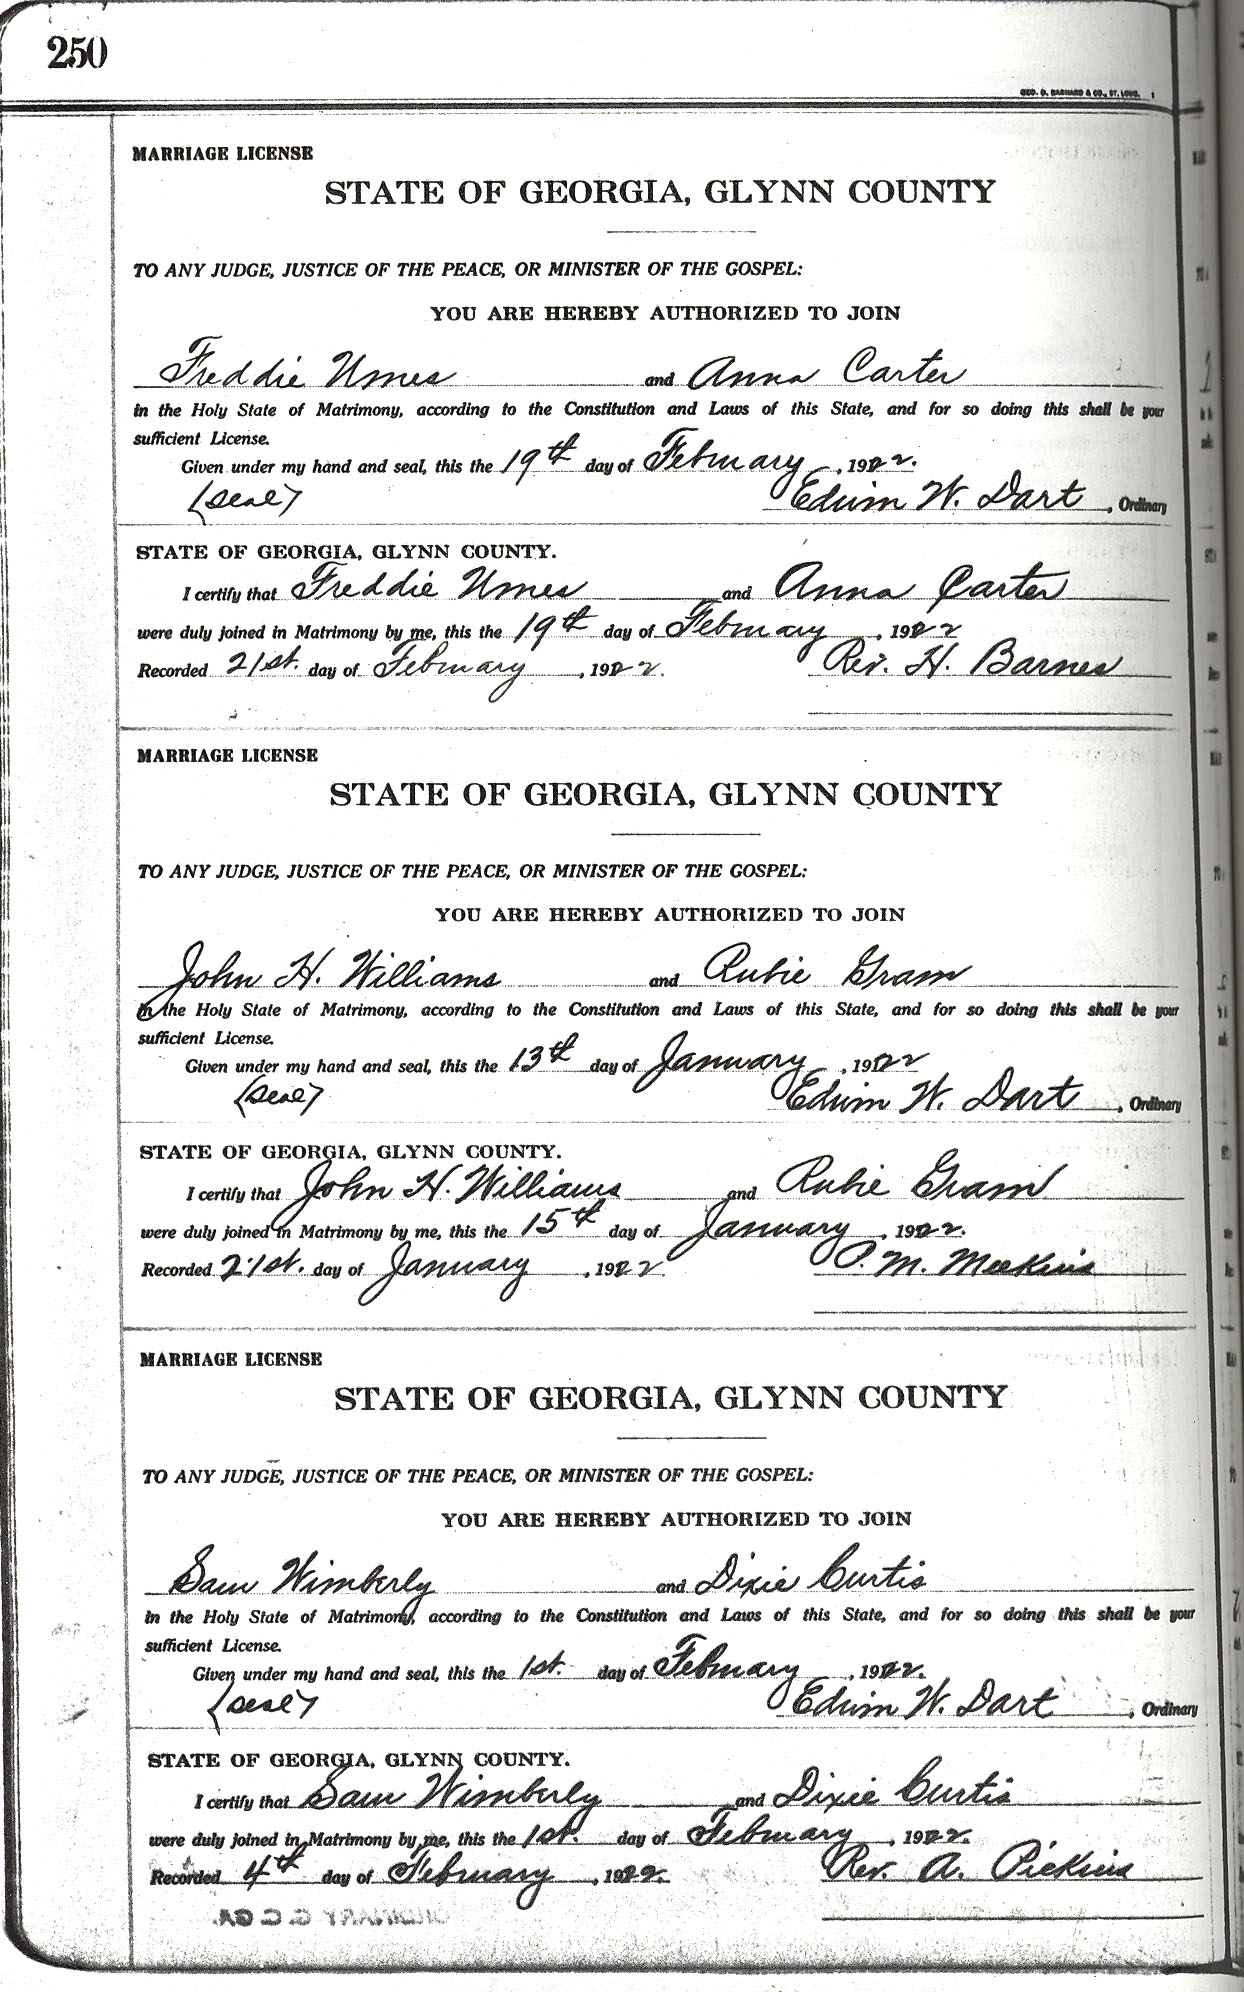 250
GEO. D. BARNARD & CO., ST. LOUIS.
MARRIAGE LICENSE
STATE OF GEORGIA, GLYNN COUNTY
TO ANY JUDGE, JUSTICE OF THE PEACE, OR MINISTER OF THE GOSPEL:
YOU ARE HEREBY AUTHORIZED TO JOIN
Freddie Umes and Anna Carter
in the Holy State of Matrimony, according to the Constitution and Laws of this State, and for so doing this shall be your
sufficient License.
Given under my hand and seal, this the 19th day of February, 1922.
(seal) Edwin W. Dart, Ordinary
STATE OF GEORGIA, GLYNN COUNTY.
I certify that Freddie Umes and Anna Carter
were duly joined in Matrimony by me, this the 19th day of February, 1922
Recorded 21st. day of February, 1922. Rev. H. Barnes
MARRIAGE LICENSE
STATE OF GEORGIA, GLYNN COUNTY
TO ANY JUDGE, JUSTICE OF THE PEACE, OR MINISTER OF THE GOSPEL:
YOU ARE HEREBY AUTHORIZED TO JOIN
John H. Williams and Rubie Gram
in the Holy State of Matrimony, according to the Constitution and Laws of this State, and for so doing this shall be your
sufficient License.
Given under my hand and seal, this the 13th day of January, 1922
(seal) Edwin W. Dart, Ordinary
STATE OF GEORGIA, GLYNN COUNTY.
I certify that John H. Williams and Rubie Gram
were duly joined in Matrimony by me, this the 15th day of January, 1922.
Recorded 21st. day of January, 1922. P. M. Meekins
MARRIAGE LICENSE
STATE OF GEORGIA, GLYNN COUNTY
TO ANY JUDGE, JUSTICE OF THE PEACE, OR MINISTER OF THE GOSPEL:
YOU ARE HEREBY AUTHORIZED TO JOIN
Sam Wimberly and Dixie Curtis
in the Holy State of Matrimony, according to the Constitution and Laws of this State, and for so doing this shall be your
sufficient License.
Given under my hand and seal, this the 1st. day of February, 1922.
(seal) Edwin W. Dart, Ordinary
STATE OF GEORGIA, GLYNN COUNTY.
I certify that Sam Wimberly and Dixie Curtis
were duly joined in Matrimony by me, this the 1st. day of February, 1922.
Recorded 4th day of February, 1922. Rev. A. Pickins
ORDINARY G. C. GA.